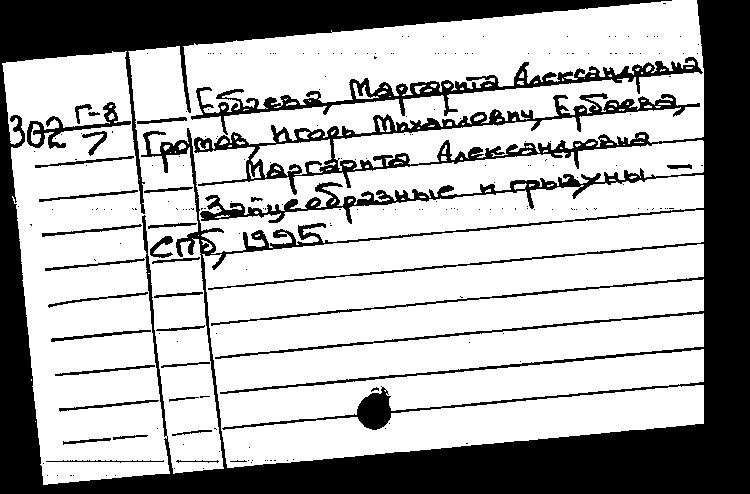 Ербаева, Маргарита Александровна
302 Г-8
7
Громов, Игорь Михайлович, Ербаева,
Маргарита Александровна
Зайцеобразные и грызуны. —
СПб, 1995.